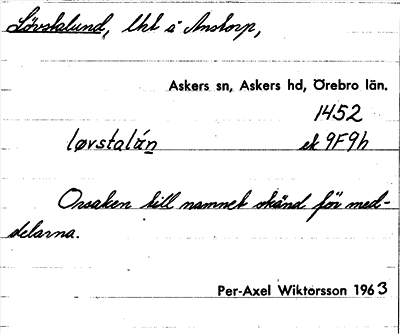 Lövstalund, lht å Anstorp,
Askers sn, Askers hd, Örebro län.
1452
løvstalún̲ ek 9F9h
Orsaken till namnet okänd för med-
delarna.
Per-Axel Wiktorsson 1963